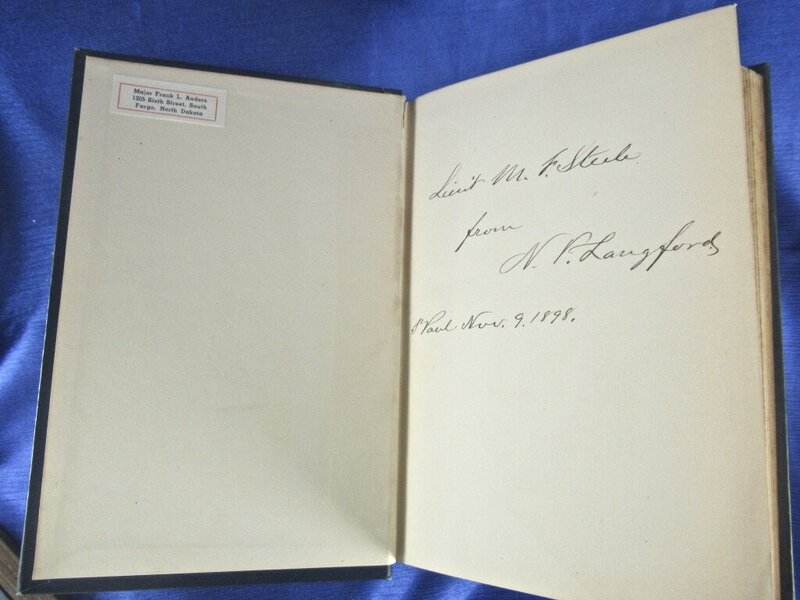 Major Frank L. Anders
1205 Sixth Street, South
Fargo, North Dakota
Lieut M. F. Steele.
from
N. P. Langford,
St Paul Nov. 9. 1898.